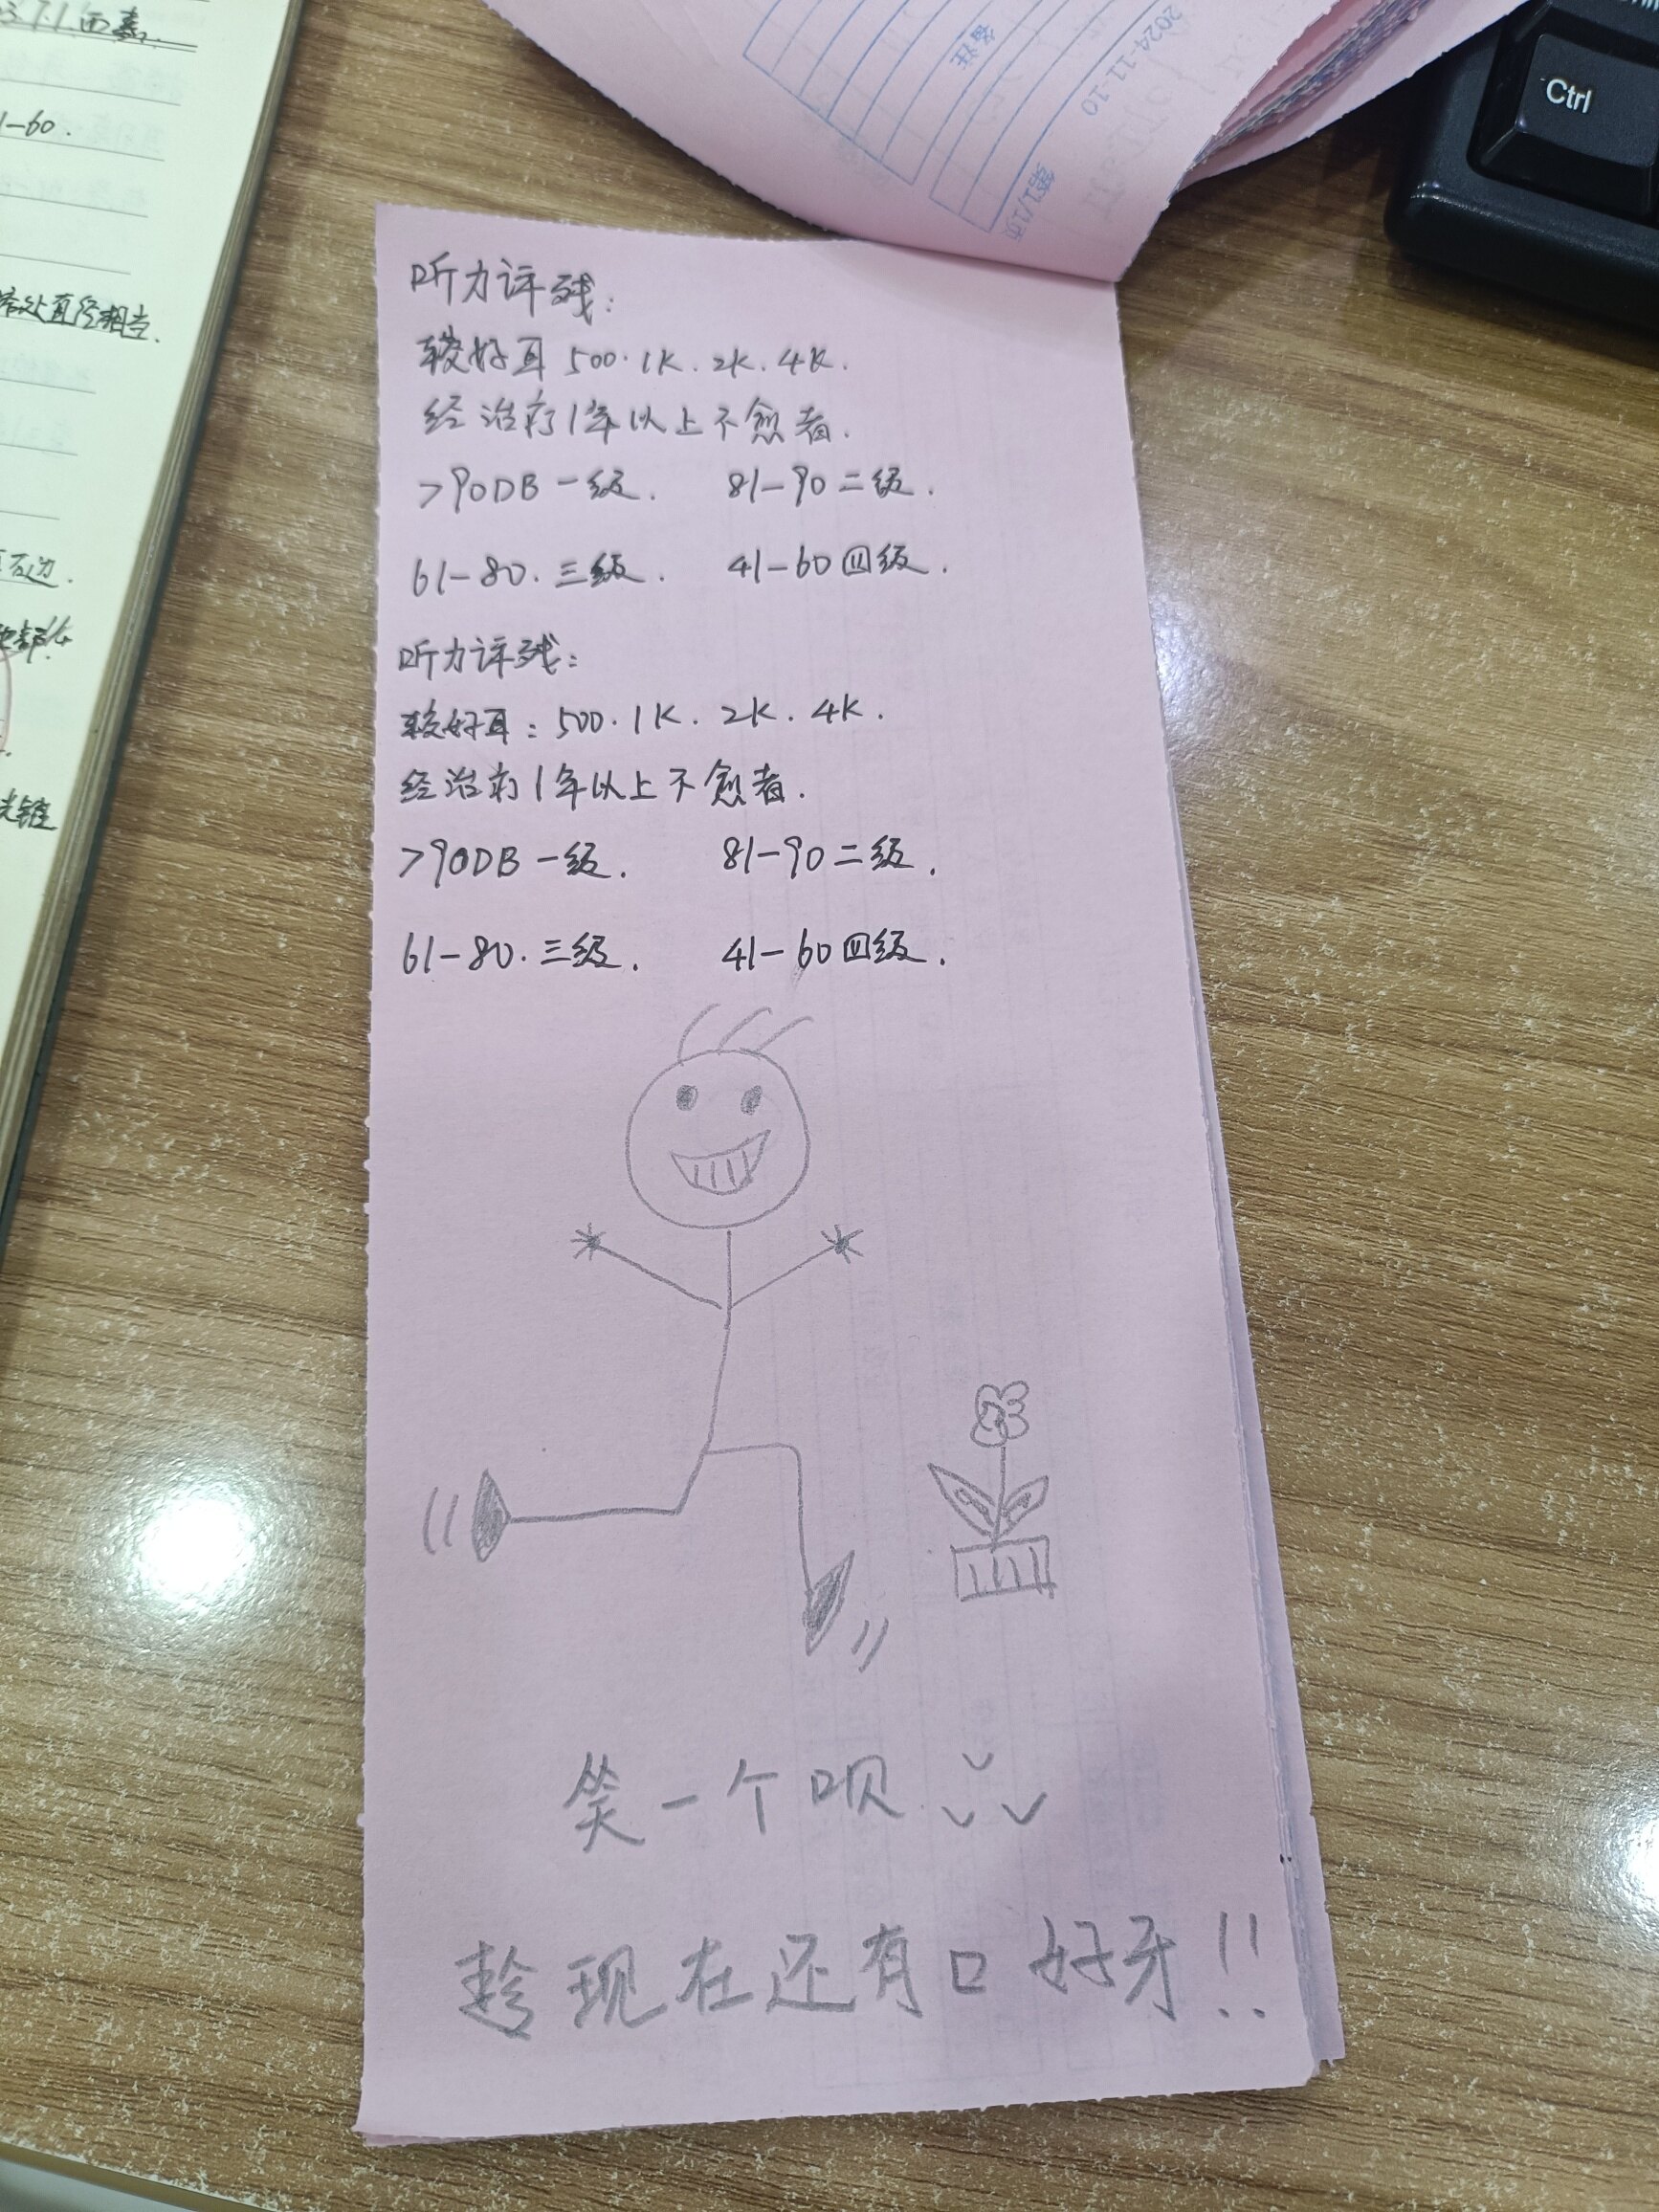 1-60.
常处直径相当.
Ctrl
备注
2024-11-10
听力评残:
较好耳 500. 1K. 2K. 4K.
经治疗1年以上不愈者.
>90DB 一级. 81-90 二级.
61-80. 三级. 41-60 四级.
听力评残:
较好耳: 500. 1K. 2K. 4K.
经治疗1年以上不愈者.
>90DB 一级. 81-90 二级.
61-80. 三级. 41-60 四级.
笑一个呗
趁现在还有口好牙!!